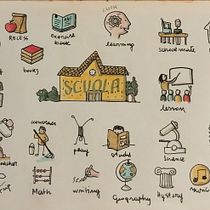 RECESS
exercise
book
learning
schoolmate
books
SCUOLA
lesson
play
study
science
Math
writing
Geography
History
Music